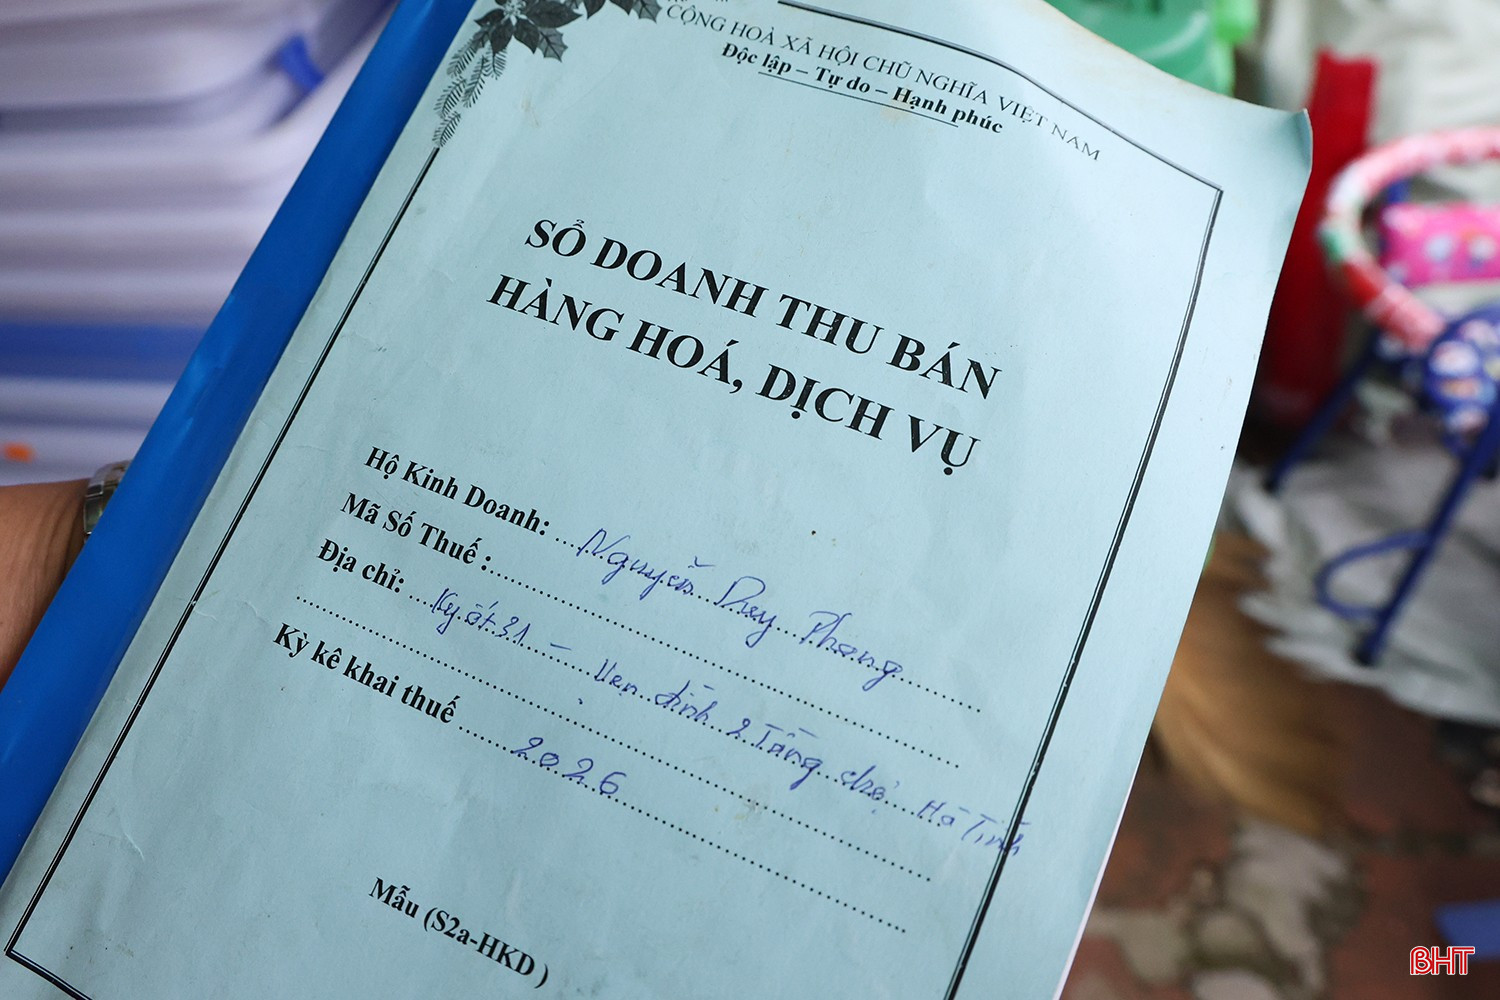 CỘNG HOÀ XÃ HỘI CHŨ NGHĨA VIỆT NAM
Độc lập – Tự do – Hạnh phúc
SỔ DOANH THU BÁN
HÀNG HOÁ, DỊCH VỤ
Hộ Kinh Doanh: Nguyễn Duy Phang
Mã Số Thuế :
Địa chỉ: Ky ốt 31 – Ven đình 2 Tầng chợ Hà Tĩnh
Kỳ kê khai thuế 2026
Mẫu (S2a-HKD )
BHT